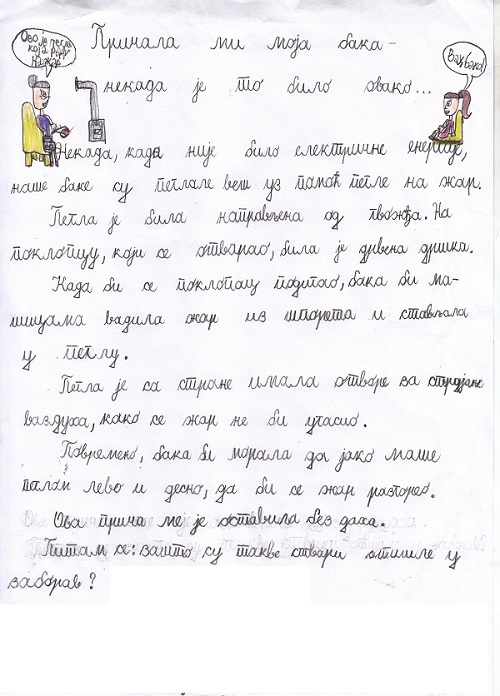 Ово је пегла
која ради
на жар
Вау, бако!
Причала ми моја бака –
некада је то било овако...
Некада, када није било електричне енергије,
наше баке су пеглале веш уз помоћ пегле на жар.
Пегла је била направљена од гвожђа. На
поклопцу, који се отварао, била је дрвена дршка.
Када би се поклопац подигао, бака би ма-
шицама вадила жар из шпорета и стављала
у пеглу.
Пегла је са стране имала отворе за струјање
ваздуха, како се жар не би угасио.
Повремено, бака би морала да јако маше
пеглом лево и десно, да би се жар разгорео.
Ова прича ме је оставила без даха.
Питам се: зашто су такве ствари отишле у
заборав?